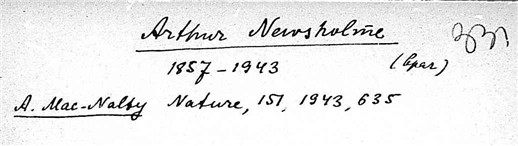 Arthur Newsholme
1857-1943
A. Mac-Nalty Nature, 151, 1943, 635